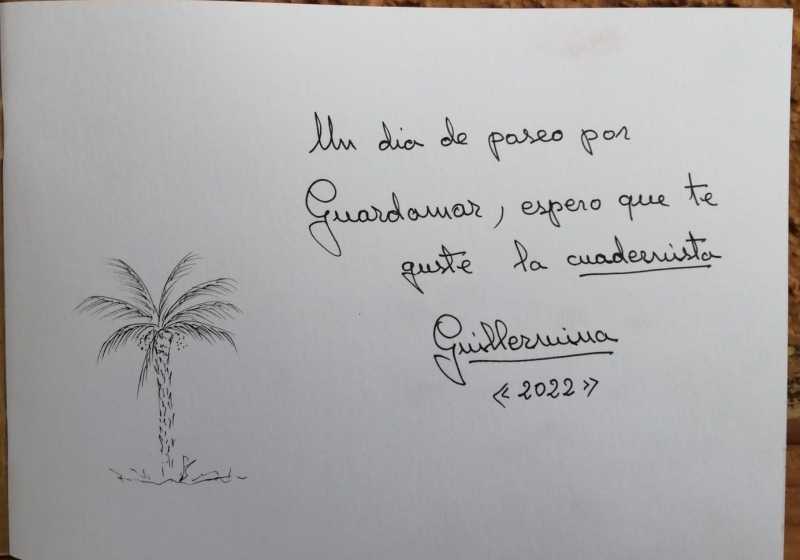 Un dia de paseo por
Guardamar, espero que te
guste la cuadernista
Guillermina
« 2022 »